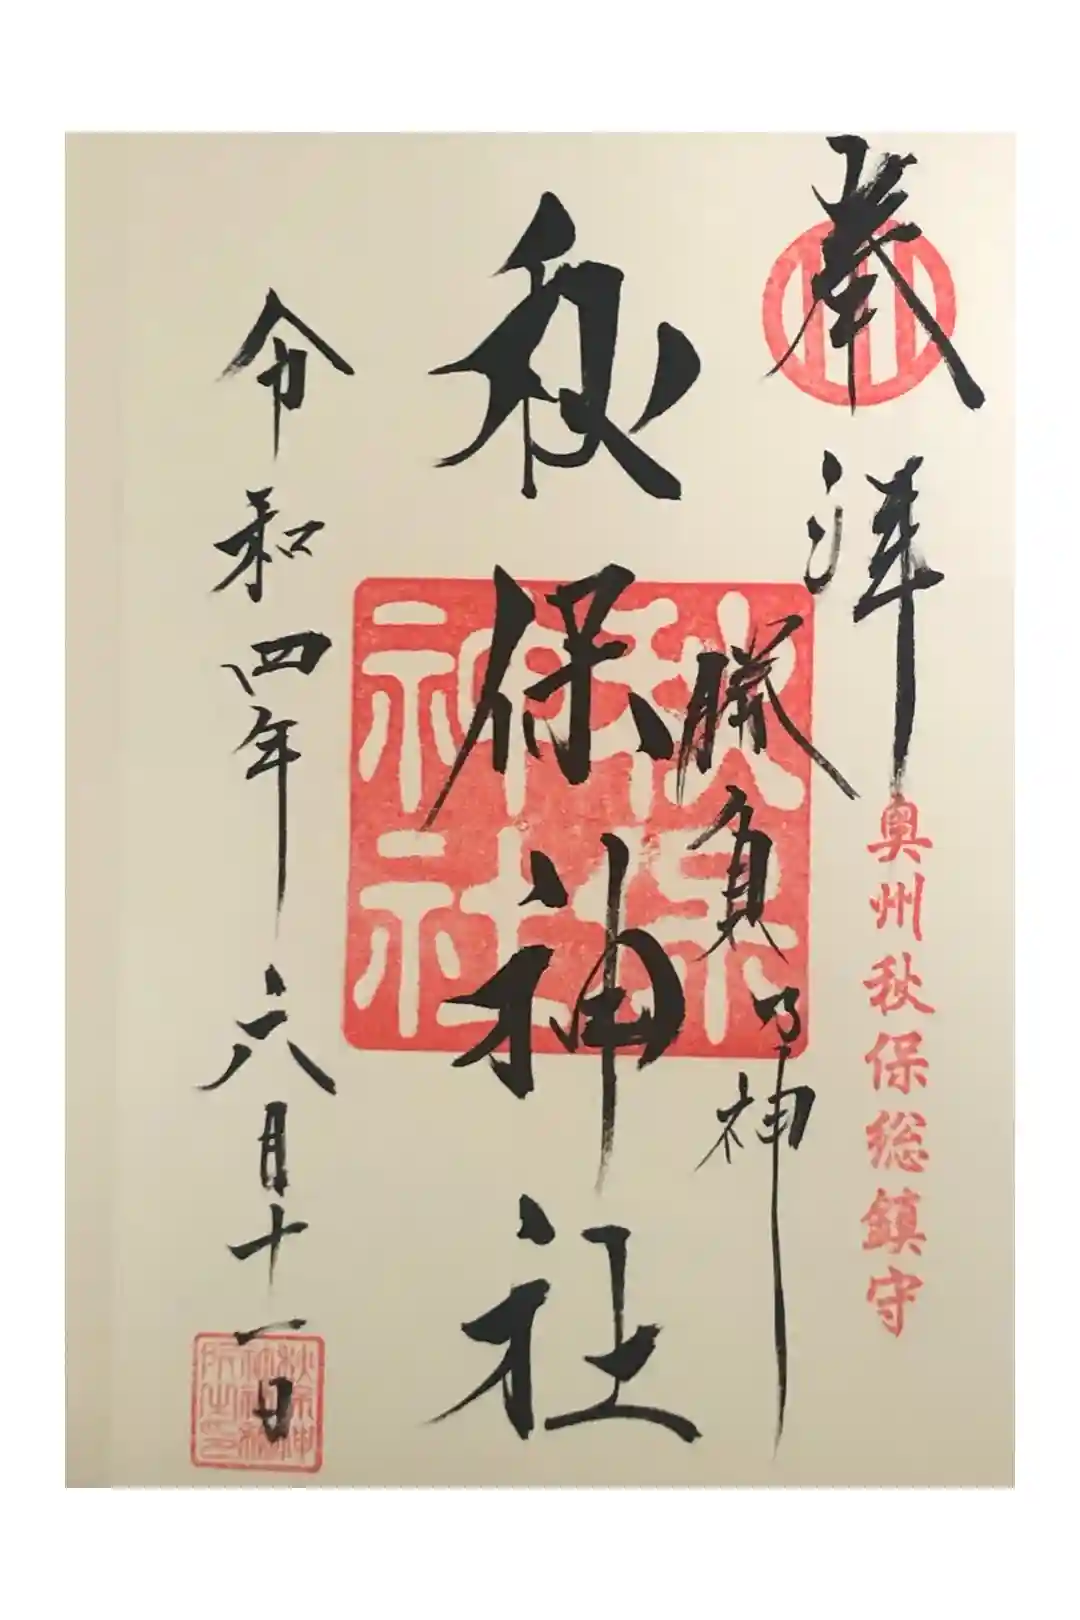 奉拝
奥州秋保総鎮守
勝負の神
秋保神社
秋保
神社
令和四年六月十一日